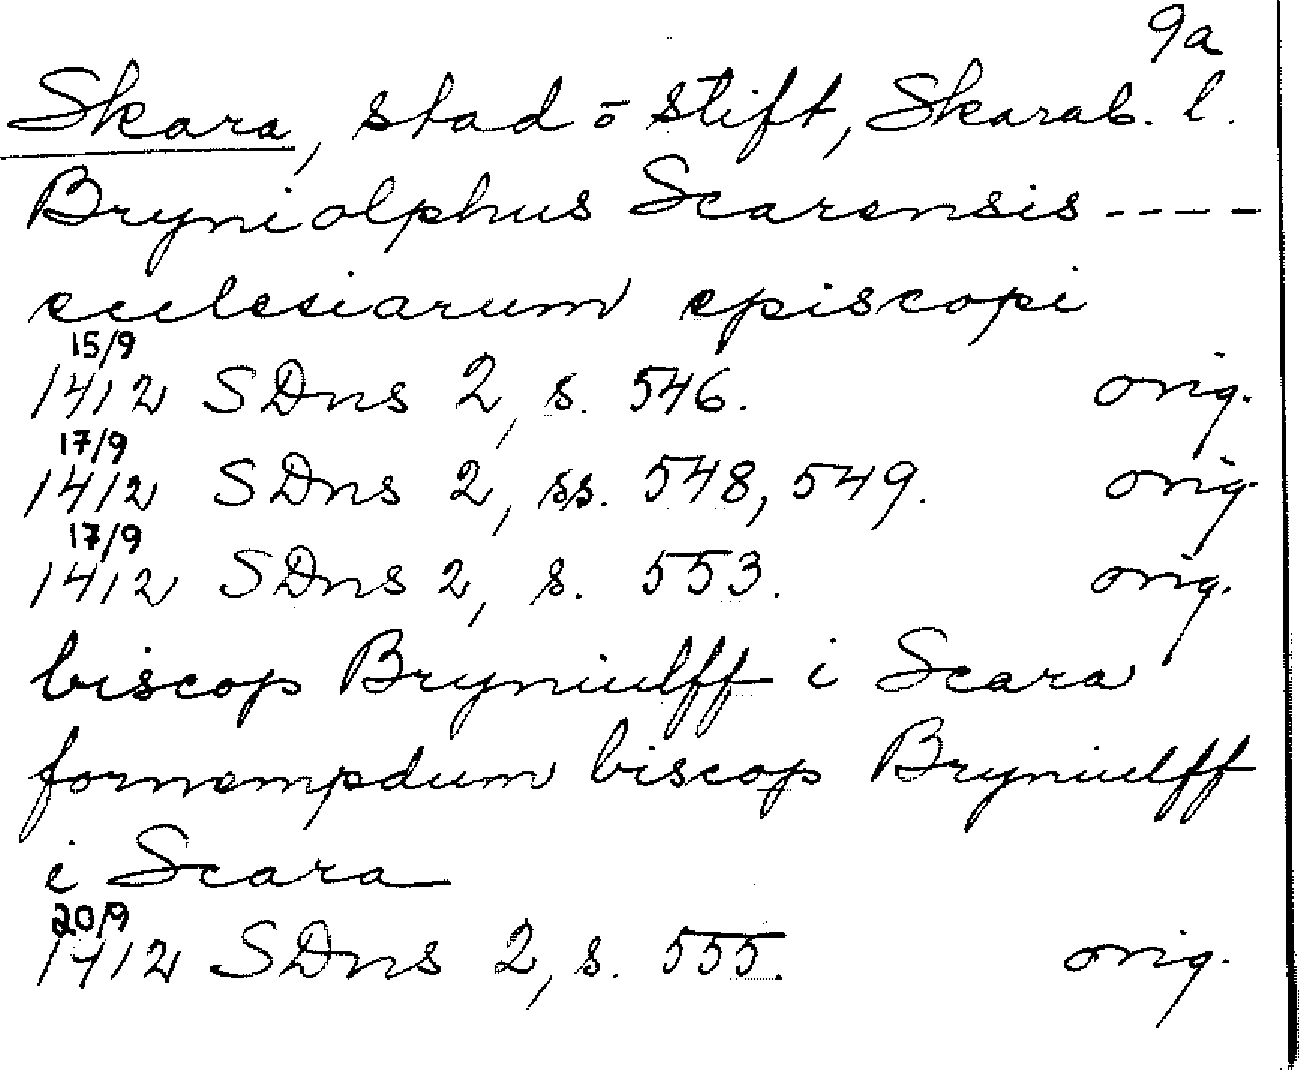 9a
Skara, stad o stift, Skarab. l.
Bryniolphus Scarensis ----
ecclesiarum episcopi
15/9
1412 SDns 2, s. 546. orig.
17/9
1412 SDns 2, ss. 548, 549. orig.
17/9
1412 SDns 2, s. 553. orig.
biscop Bryniulff i Scara
fornempdum biscop Bryniulff
i Scara
20/9
1412 SDns 2, s. 555. orig.